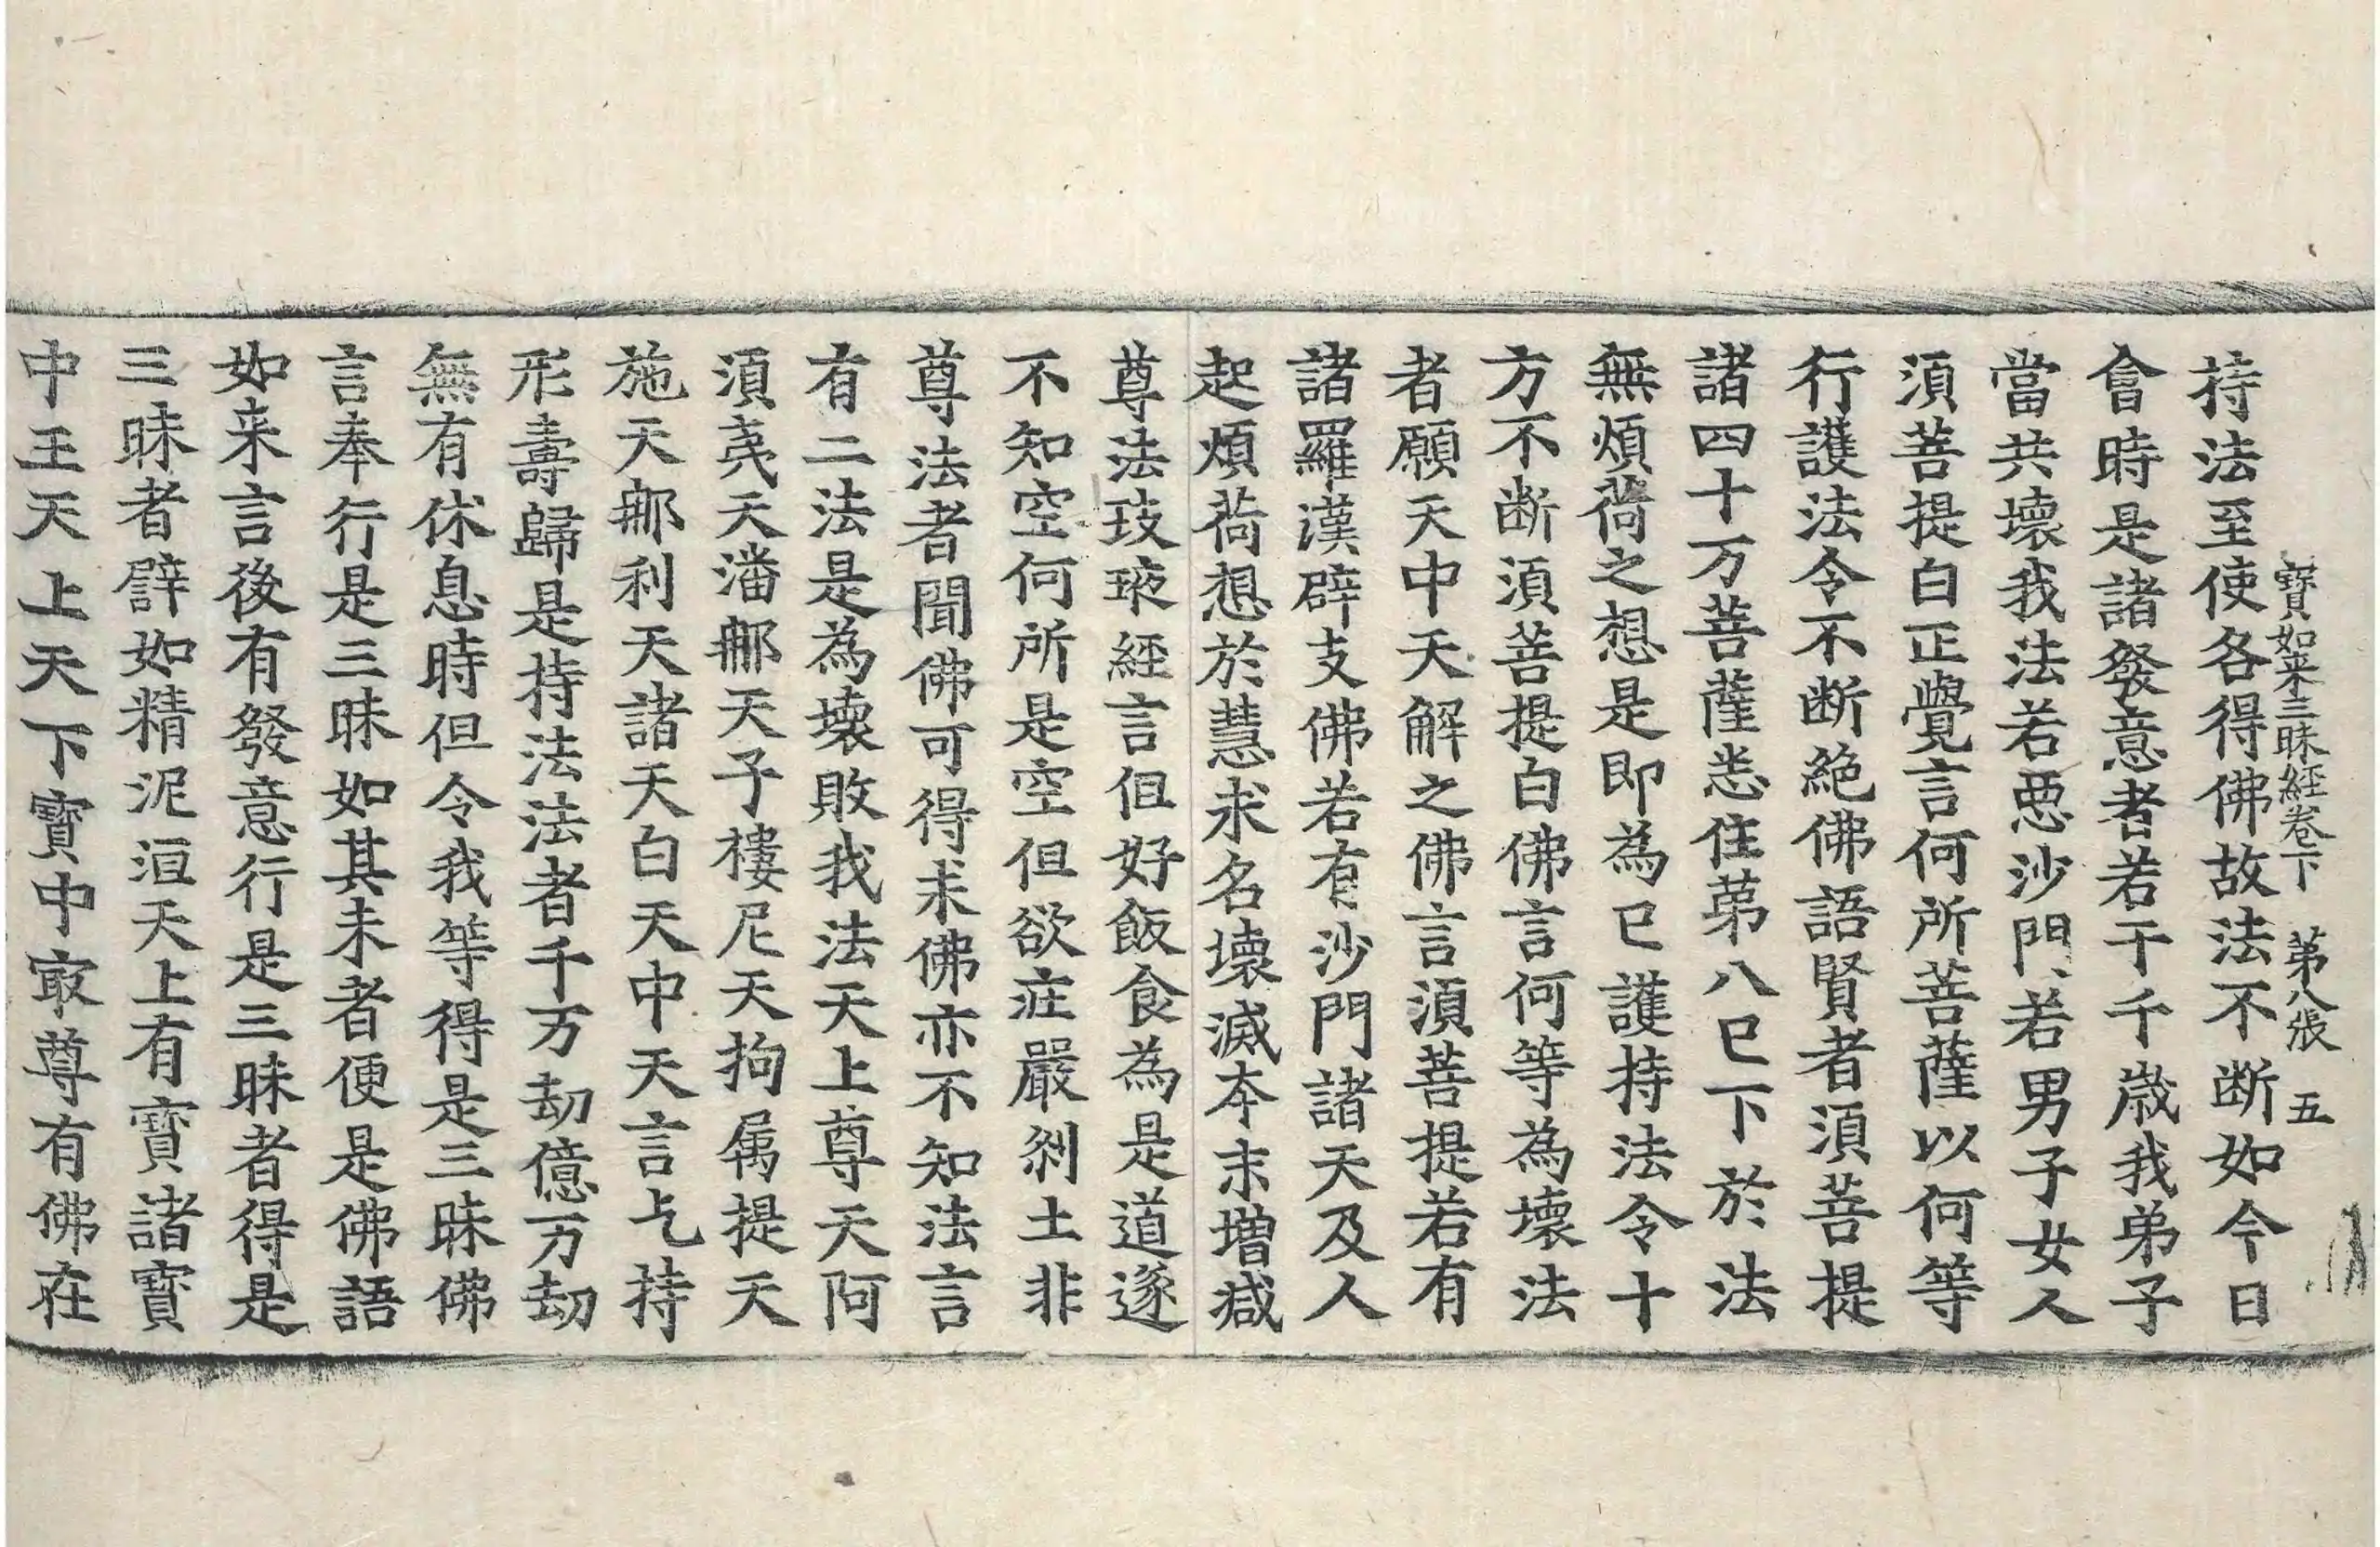 寶如来三昧經卷下 第八張 五
持法至使各得佛故法不断如今日
會時是諸發意者若干千歲我弟子
當共壞我法若惡沙門若男子女人
須菩提白正覺言何所菩薩以何等
行護法令不断絶佛語賢者須菩提
諸四十万菩薩悉住苐八已下於法
無煩荷之想是即為已護持法令十
方不断須菩提白佛言何等為壞法
者願天中天解之佛言須菩提若有
諸羅漢辟支佛若有沙門諸天及人
起煩荷想於慧求名壞滅本末增減
尊法𤤴經言但好飯食為是道遂
不知空何所是空但欲庄嚴刹土非
尊法者聞佛可得求佛亦不知法言
有二法是為壞敗我法天上尊天阿
須羑天潘鄊天子樓尼天拘属提天
施天鄊利天諸天白天中天言乞持
形壽歸是持法法者千万劫億万劫
無有休息時但令我等得是三昧佛
言奉行是三昧如其未者便是佛語
如来言後有發意行是三昧者得是
三昧者譬如精泥洹天上有寶諸寶
中王天上天下寶中㝡尊有佛在